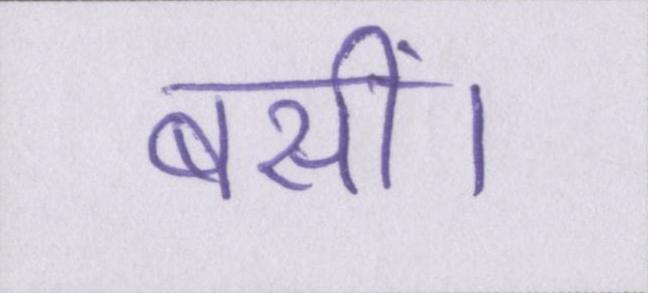 बसीं।